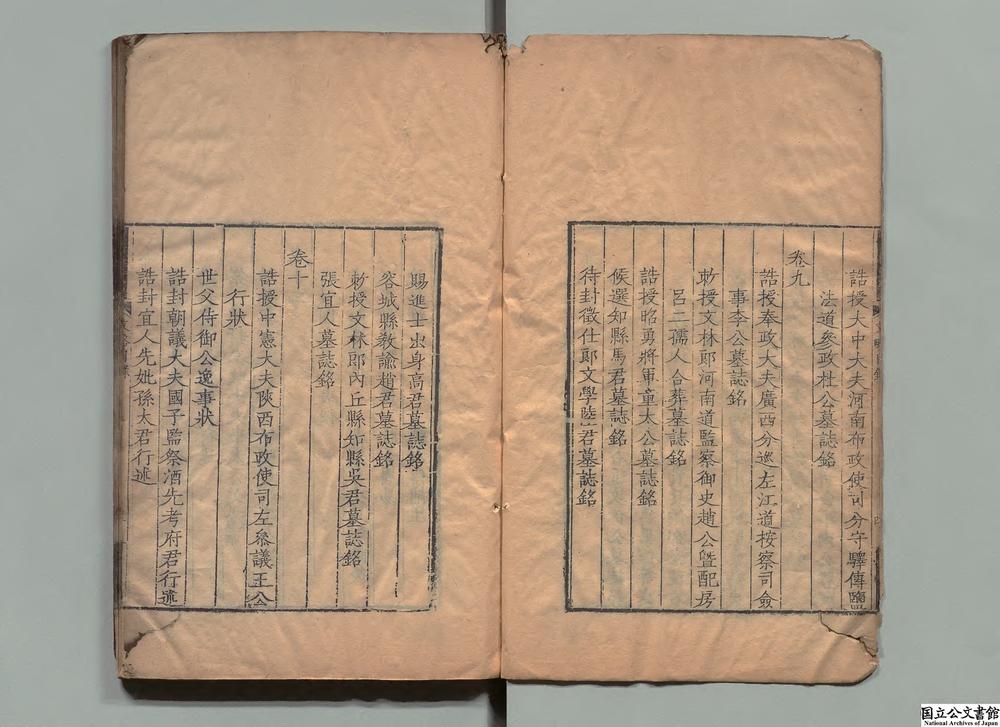 誥授大中大夫河南布政使司分守驛傳鹽
法道參政杜公墓誌銘
卷九
誥授奉政大夫廣西分巡左江道按察司僉
事李公墓誌銘
敕授文林郎河南道監察御史趙公曁配房
呂二孺人合葬墓誌銘
誥授昭勇將軍童太公墓誌銘
候選知縣馬君墓誌銘
待封徵仕郎文學陸君墓誌銘
賜進士出身高君墓誌銘
容城縣敎諭趙君墓誌銘
敕授文林郎內丘縣知縣吳君墓誌銘
張宜人墓誌銘
卷十
誥授中憲大夫陝西布政使司左叅議王公
行狀
世父侍御公逸事狀
誥封朝議大夫國子監祭酒先考府君行述
誥封宜人先妣孫太君行述
国立公文書館
National Archives of Japan